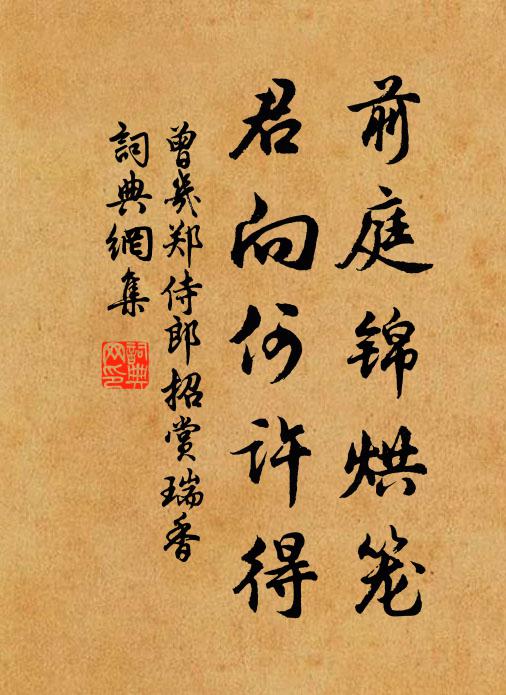 前庭锦烘笼
君向何许得
曾几郑侍郎招赏瑞香
詞典網集
詞典网印